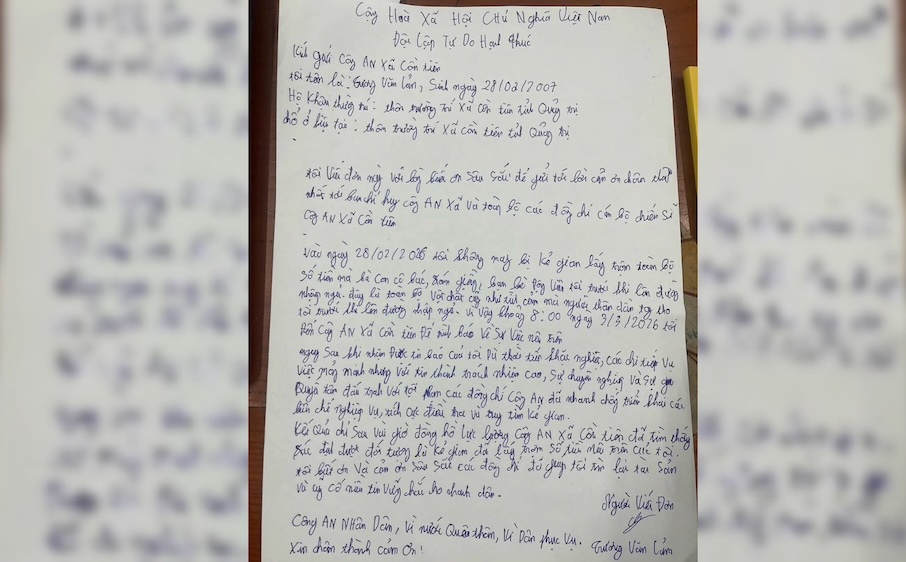 Cộng Hoà Xã Hội Chủ Nghĩa Việt Nam
Độc lập Tự Do Hạnh Phúc
Kính gửi Công AN Xã Cồn tiên
tôi tên là: Trương Văn Cảm, Sinh ngày 28/02/2007
Hộ khẩu thường trú: thôn trường trí Xã Cồn tiên tỉnh Quảng trị
chỗ ở hiện tại: thôn trường trí Xã cồn tiên tỉnh Quảng trị
tôi Viết đơn này với lòng biết ơn sâu sắc để gửi tới lời cảm ơn chân thành
nhất tới ban chỉ huy công AN Xã và toàn bộ các đồng chí cán bộ chiến Sĩ
Công AN Xã Cồn tiên
Vào ngày 28/02/2026 tôi không may bị kẻ gian lấy trộm toàn bộ
số tiền mà bà con cô bác, xóm giềng, bạn bè động viên tôi trước khi lên đường
nhập ngũ. đây là toàn bộ vật chất cũng như tình cảm mà người thân dành tặng cho
tôi trước khi lên đường nhập ngũ. vì Vậy khoảng 8:00 ngày 3/3/2026 tôi
Đến Công AN Xã cồn tiên Để trình báo Về Sự Việc nêu trên
ngay Sau khi nhận Được tin báo Của tôi Dù thời tiết khắc nghiệt, các chi tiết Vụ
Việc mỏng manh nhưng với tinh thần trách nhiệm cao, Sự chuyên nghiệp Và Sự
Quyết tâm đấu tranh Với tội phạm các đồng chí Công AN đã nhanh chóng triển khai các
biện nghiệp Vụ, tích cực điều tra và truy tìm kẻ gian.
Kết Quả chỉ Sau Vài giờ đồng hồ lực lượng Công AN Xã Cồn tiên đã tìm thấy
xác định được đối tượng là kẻ gian đã lấy trộm Số tiền nêu trên của tôi.
tôi biết ơn Và cảm ơn Sâu Sắc các đồng chí đã giúp tôi tìm lại tài Sản
và củng cố niềm tin Vững chắc cho nhân dân.
Người Viết Đơn
Công AN Nhân Dân, Vì nước Quên thân, Vì Dân phục Vụ.
Trương Văn Cảm
Xin chân thành cảm ơn!